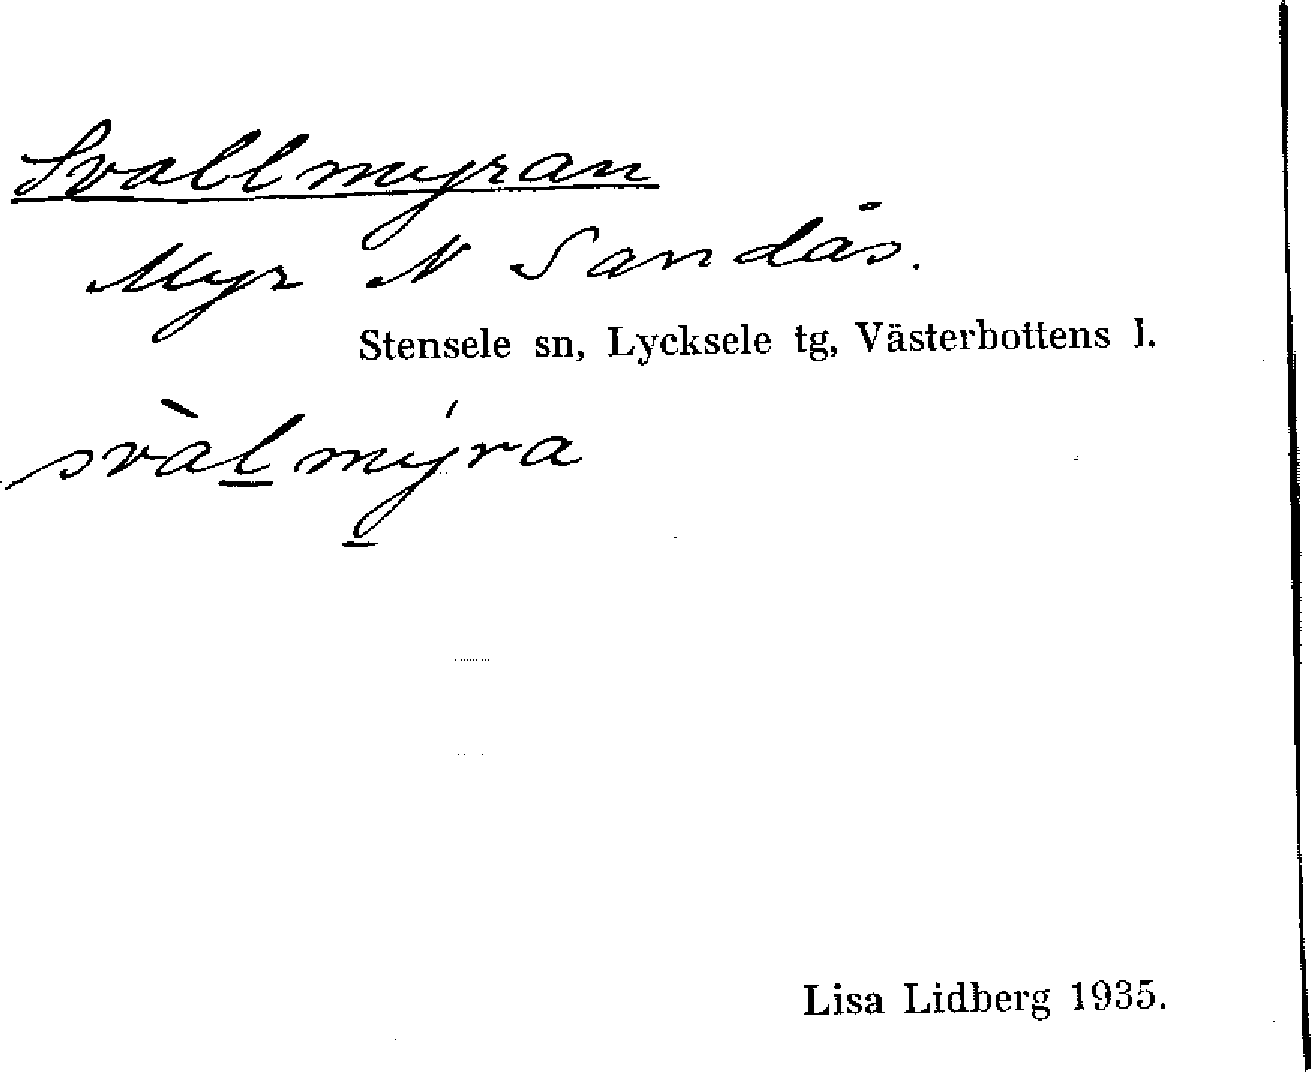 Svallmyran
Myr N Sandås.
Stensele sn, Lycksele tg, Västerbottens l.
svàl̲mý̲ra
Lisa Lidberg 1935.